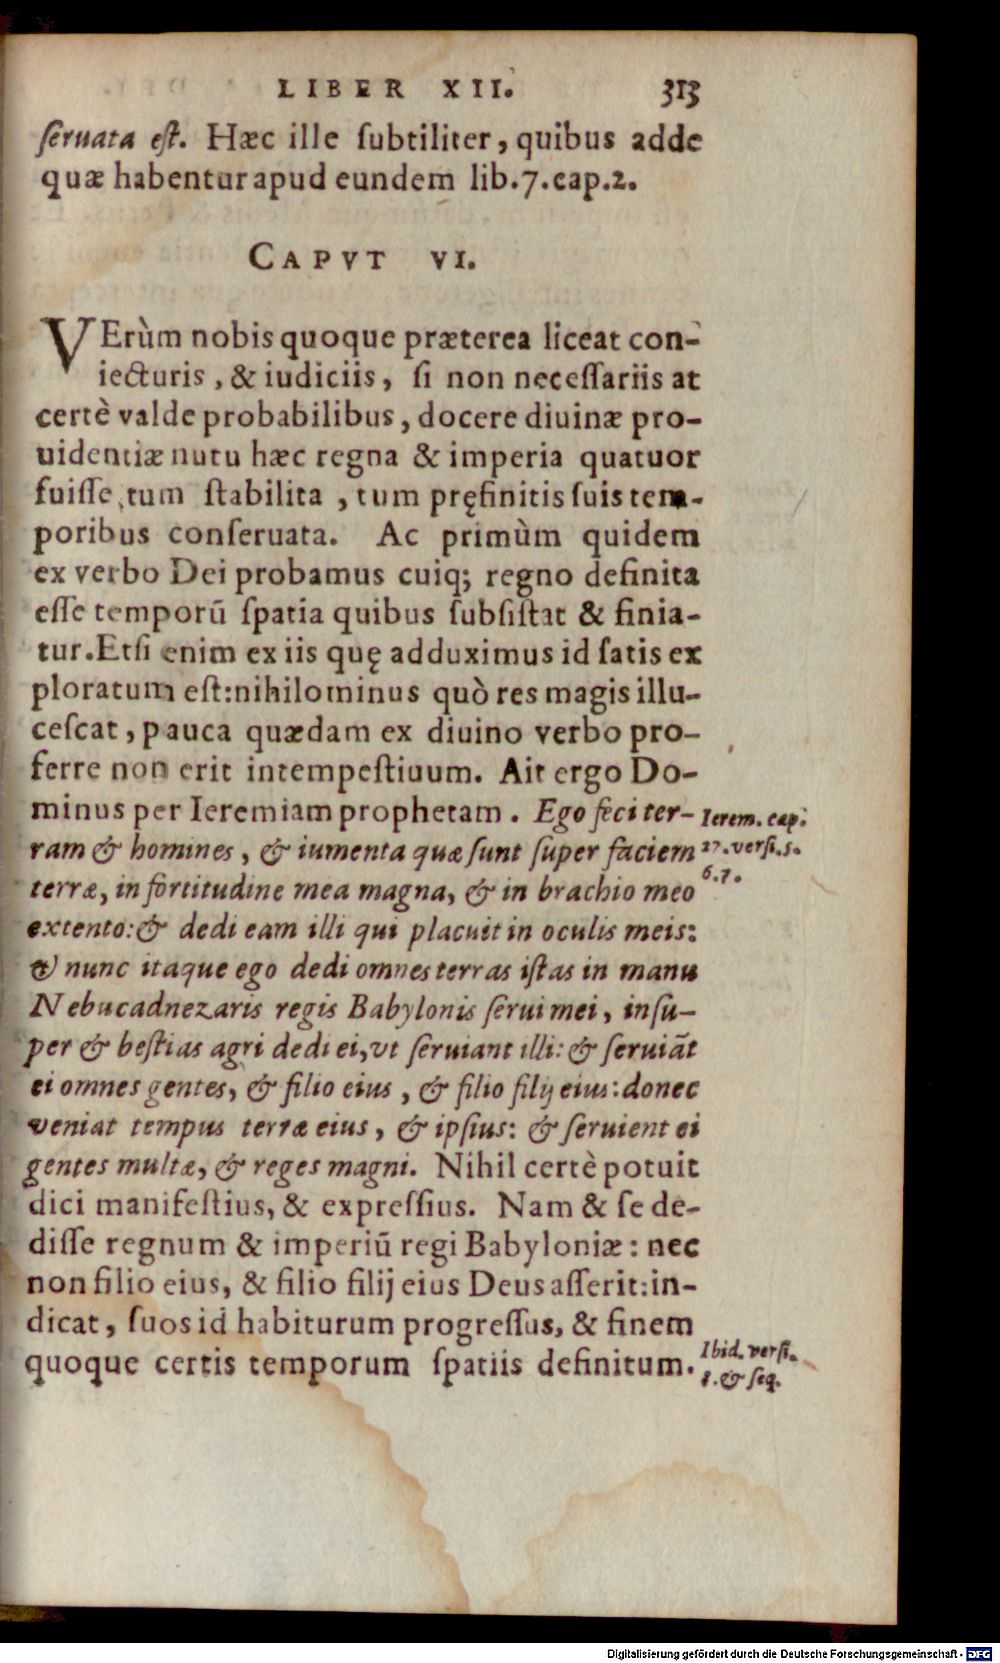 LIBER XII. 313
ſeruata eſt. Hæc ille ſubtiliter, quibus adde
quæ habentur apud eundem lib.7.cap.2.
CAPVT VI.
VErùm nobis quoque præterea liceat con-
iecturis, & iudiciis, ſi non neceſſariis at
certè valde probabilibus, docere diuinæ pro-
uidentiæ nutu hæc regna & imperia quatuor
fuiſſe, tum ſtabilita, tum pręfinitis ſuis tem-
poribus conſeruata. Ac primùm quidem
ex verbo Dei probamus cuiq; regno definita
eſſe temporū ſpatia quibus ſubſiſtat & finia-
tur. Etſi enim ex iis quę adduximus id ſatis ex
ploratum eſt: nihilominus quò res magis illu-
ceſcat, pauca quædam ex diuino verbo pro-
ferre non erit intempeſtiuum. Ait ergo Do-
minus per Ieremiam prophetam. Ego feci ter-
ram & homines, & iumenta quæ ſunt ſuper faciem
terræ, in fortitudine mea magna, & in brachio meo
extento: & dedi eam illi qui placuit in oculis meis:
& nunc itaque ego dedi omnes terras iſtas in manu
Nebucadnezaris regis Babylonis ſerui mei, inſu-
per & beſtias agri dedi ei, vt ſeruiant illi: & ſeruiāt
ei omnes gentes, & filio eius, & filio filij eius: donec
veniat tempus terræ eius, & ipſius: & ſeruient ei
gentes multæ, & reges magni. Nihil certè potuit
dici manifeſtius, & expreſſius. Nam & ſe de-
diſſe regnum & imperiū regi Babyloniæ: nec
non filio eius, & filio filij eius Deus aſſerit: in-
dicat, ſuos id habiturum progreſſus, & finem
quoque certis temporum ſpatiis definitum.
Ierem. cap.
27. verſi. 5.
6. 7.
Ibid. verſi.
8. & ſeq.
Digitalisierung gefördert durch die Deutsche Forschungsgemeinschaft - DFG